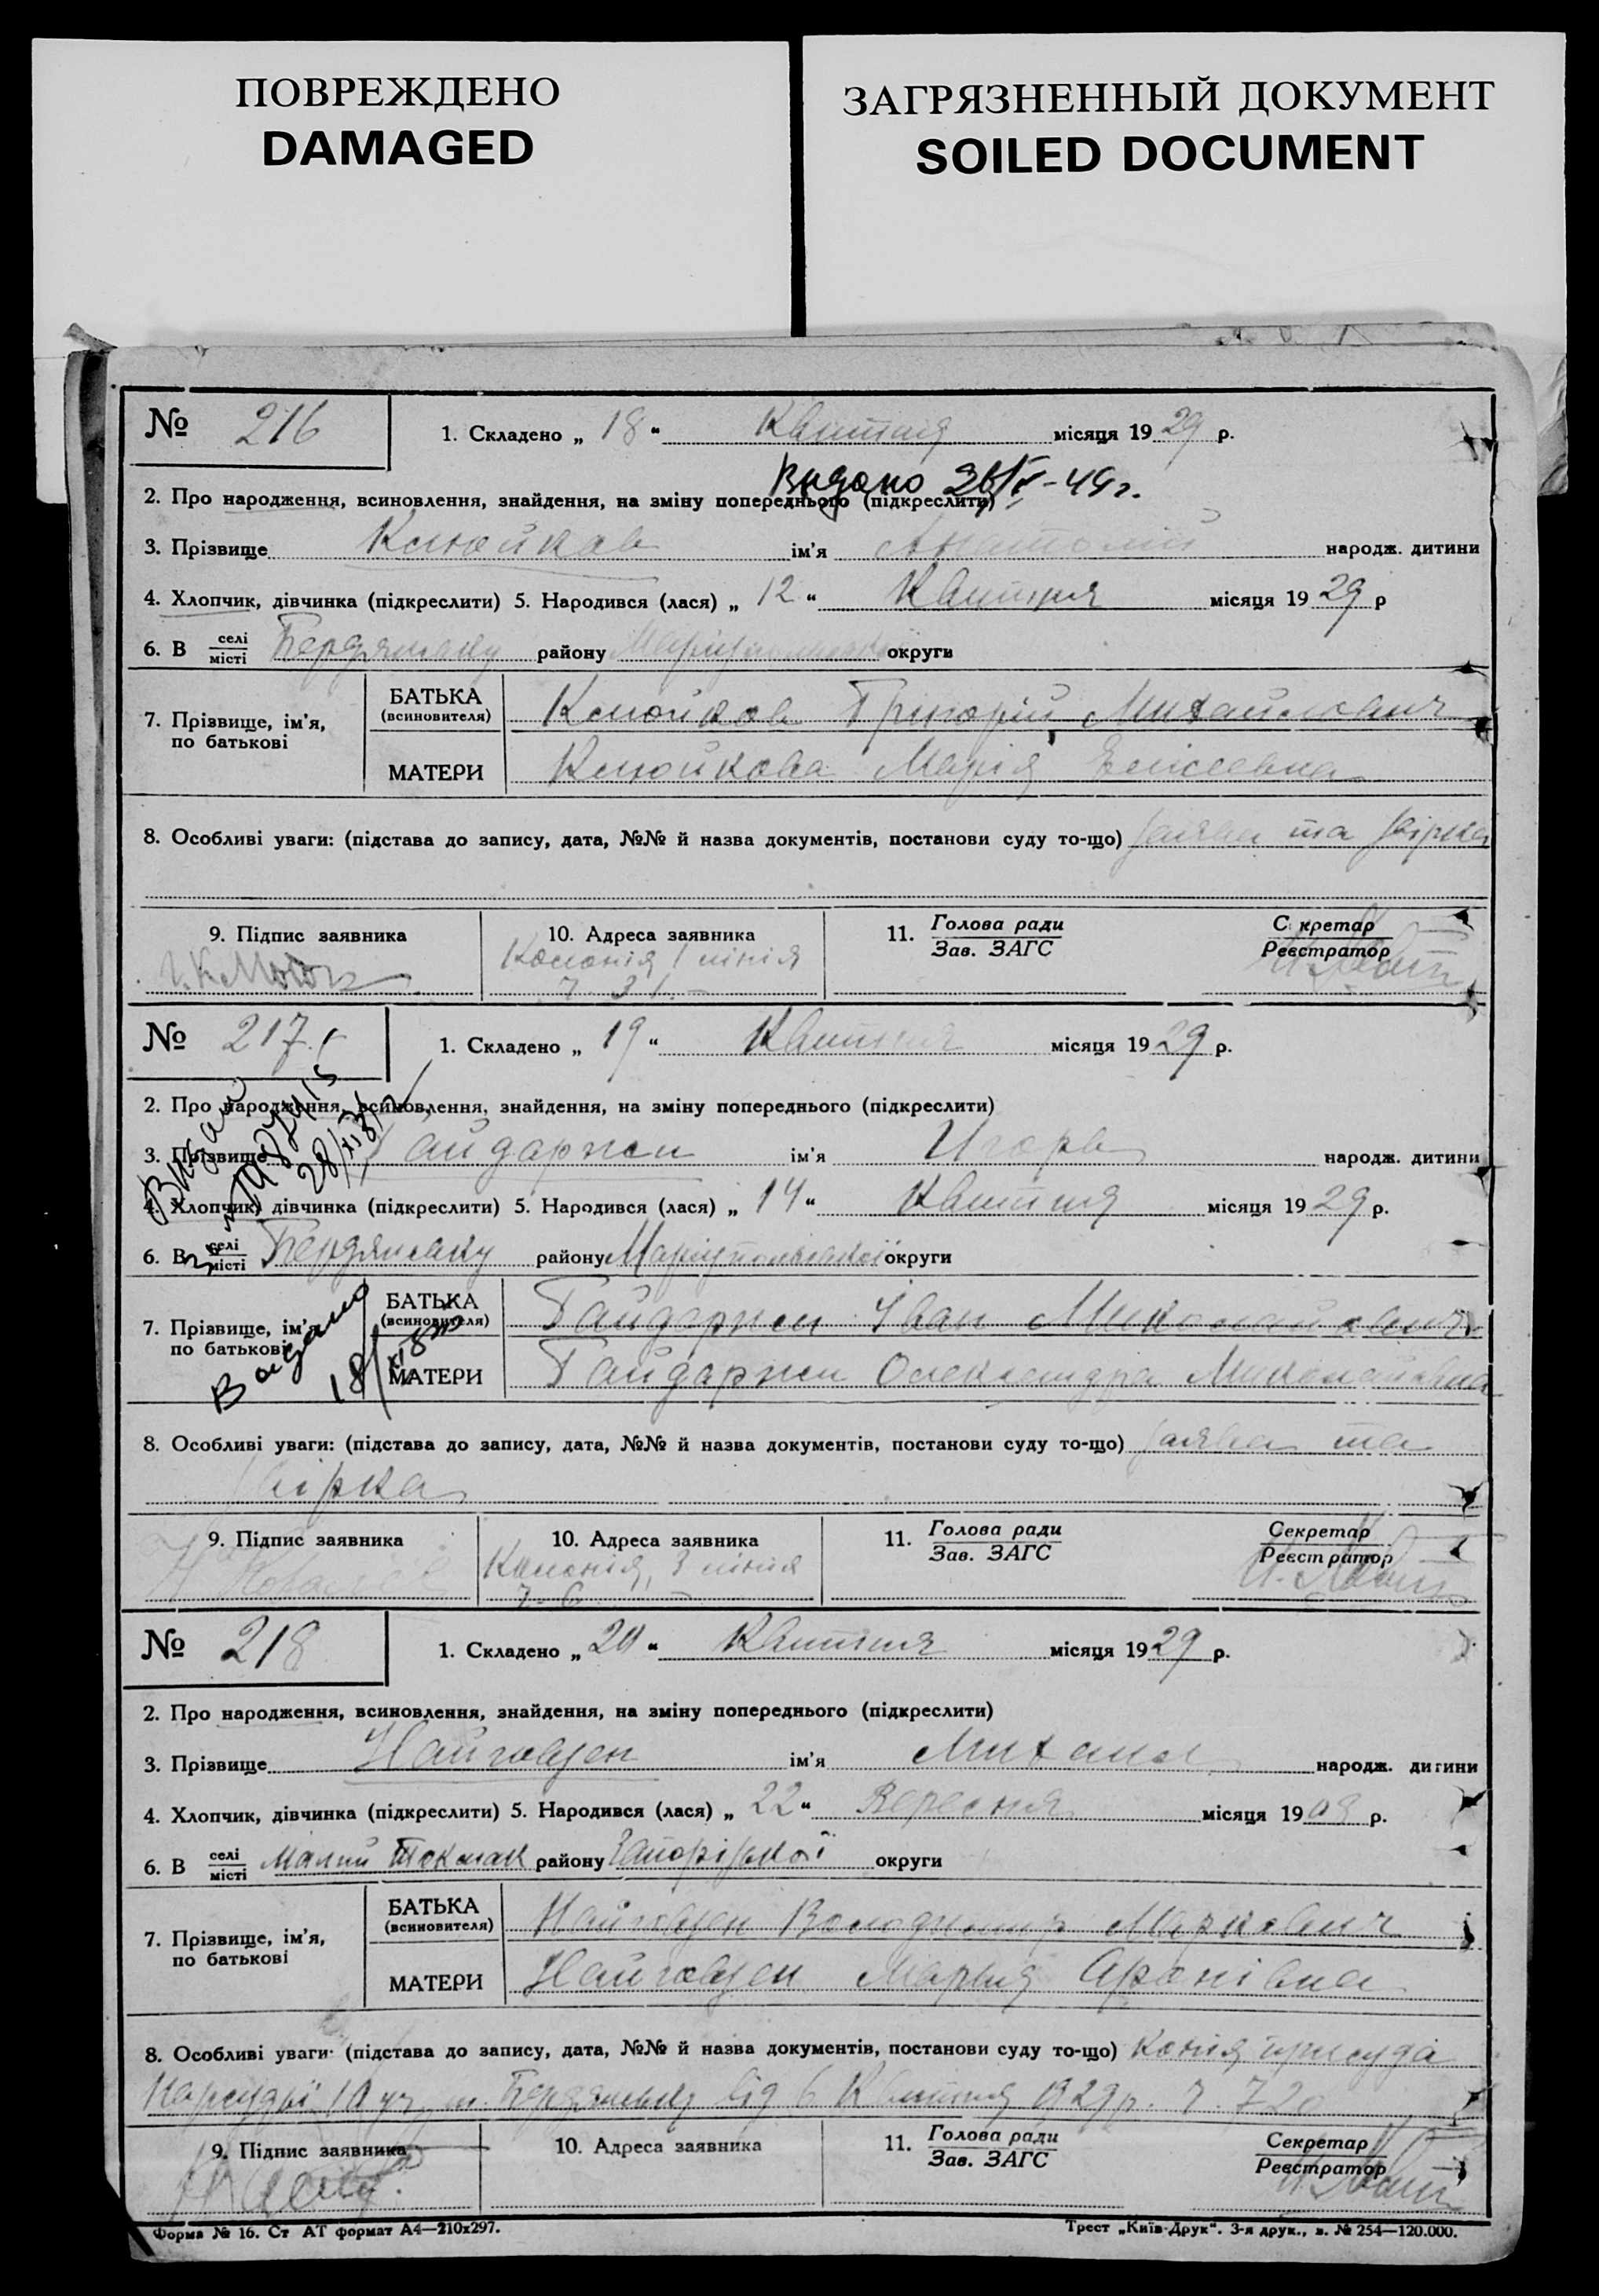 ПОВРЕЖДЕНО
DAMAGED
ЗАГРЯЗНЕННЫЙ ДОКУМЕНТ
SOILED DOCUMENT
№ 216 1. Складено „ 18 “ Квитня місяця 1929 р.
Видано -49 г.
2. Про народження, всиновлення, знайдення, на зміну попереднього (підкреслити)
3. Прізвище Клюйков ім'я Анатолий народж. дитини
4. Хлопчик, дівчинка (підкреслити) 5. Народився (лася) „ 12 “ Квитня місяця 1929 р
6. В селі місті Бердянську району Маріупольської округи
7. Прізвище, ім'я, по батькові
БАТЬКА (всиновителя) Клюйков Грігорій Михайлович
МАТЕРИ Клюйкова Марія Елісеевна
8. Особливі уваги: (підстава до запису, дата, №№ й назва документів, постанови суду то-що) заява та звірка
9. Підпис заявника 10. Адреса заявника 11. Голова ради Зав. ЗАГС С кретар Реєстратор
Колонія 1 лінія
ч. 31.
№ 217 1. Складено „ 19 “ Квитня місяця 1929 р.
2. Про народження, всиновлення, знайдення, на зміну попереднього (підкреслити)
3. Прізвище Гайдаржи ім'я Игорь народж. дитини
4. Хлопчик, дівчинка (підкреслити) 5. Народився (лася) „ 14 “ Квитня місяця 1929 р.
6. В селі місті Бердянську району Маріупольської округи
7. Прізвище, ім'я, по батькові
Видано
БАТЬКА (всиновителя) Гайдаржи Іван Миколайович
МАТЕРИ Гайдаржи Олександра Миколаївна
8. Особливі уваги: (підстава до запису, дата, №№ й назва документів, постанови суду то-що) заява та
звірка
9. Підпис заявника 10. Адреса заявника 11. Голова ради Зав. ЗАГС Секретар Реєстратор
Колонія, 3 лінія
ч. 6
№ 218 1. Складено „ 20 “ Квитня місяця 1929 р.
2. Про народження, всиновлення, знайдення, на зміну попереднього (підкреслити)
3. Прізвище ім'я Михаил народж. дитини
4. Хлопчик, дівчинка (підкреслити) 5. Народився (лася) „ 22 “ Вересня місяця 1908 р.
6. В селі місті Малий Токмак району Запорізької округи
7. Прізвище, ім'я, по батькові
БАТЬКА (всиновителя) Володимир Маркович
МАТЕРИ Мария Аронівна
8. Особливі уваги: (підстава до запису, дата, №№ й назва документів, постанови суду то-що) Копія присуда
Нарсудні 10 уч. м. Бердянську від 6 Квитня 1929 р. ч. 720
9. Підпис заявника 10. Адреса заявника 11. Голова ради Зав. ЗАГС Секретар Реєстратор
Форма № 16. Ст АТ формат А4—210х297. Трест „Київ-Друк“. 3-я друк., з. № 254—120.000.